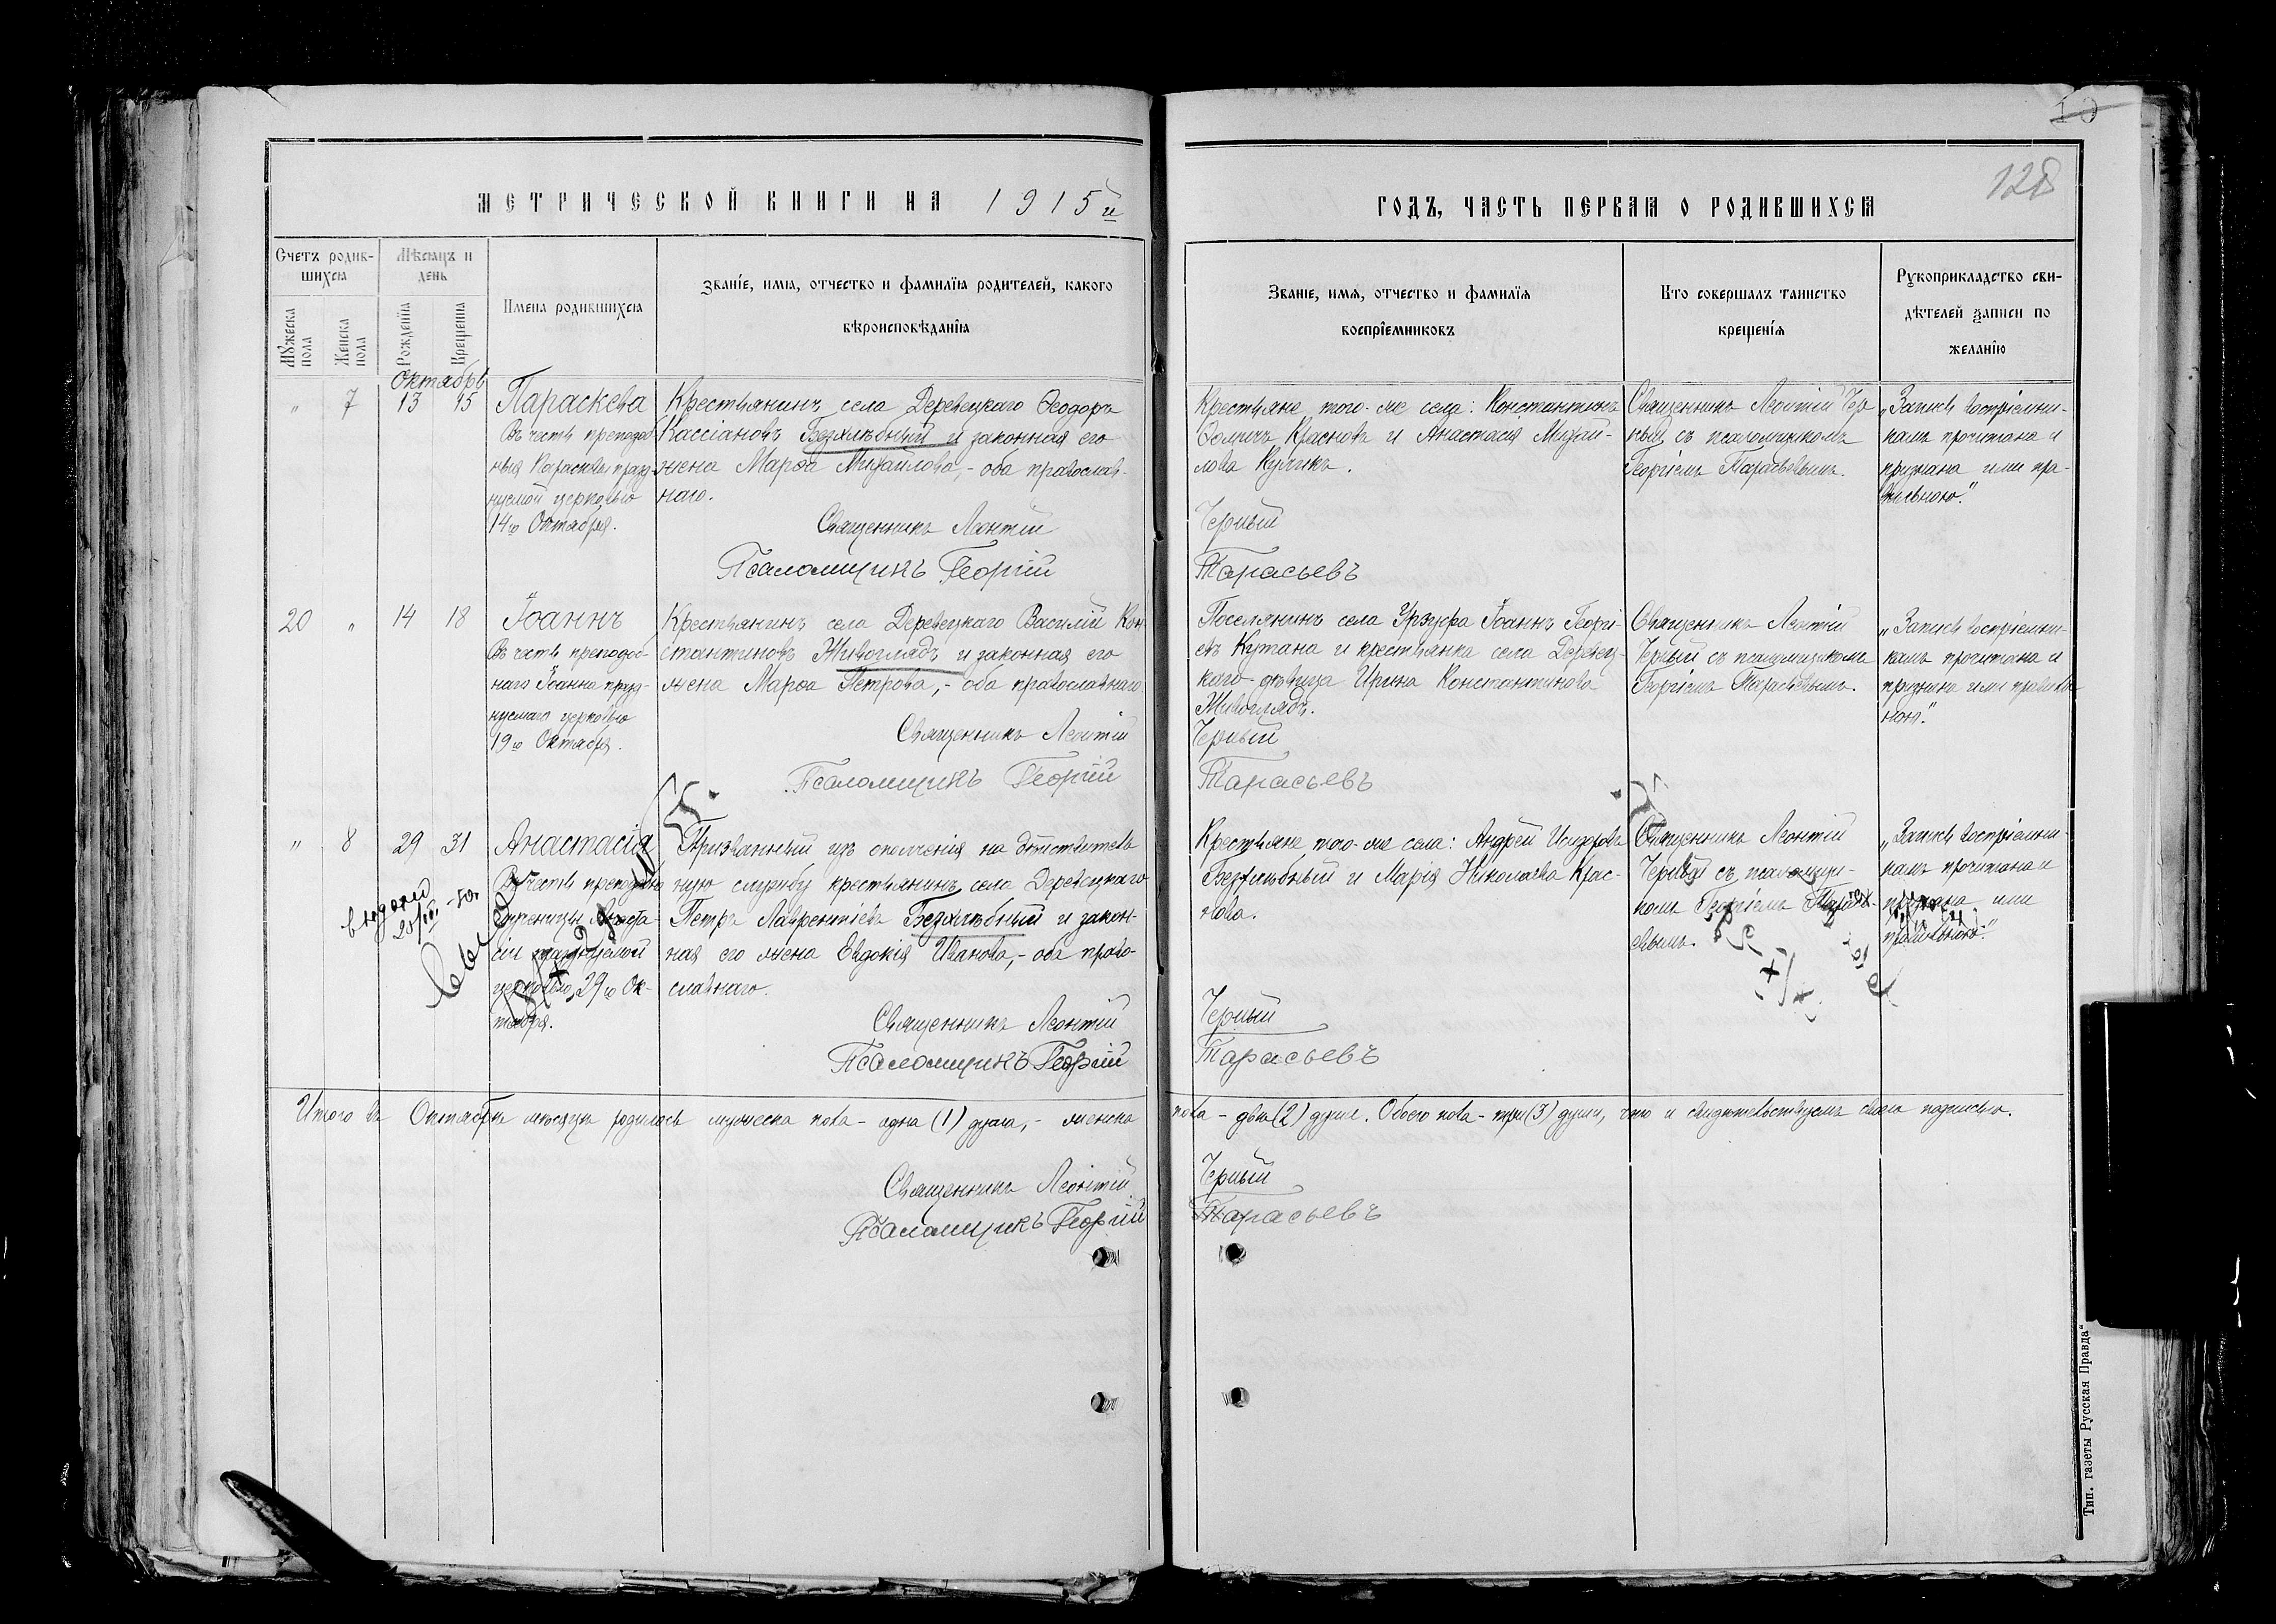 10
128
МЕТРИЧЕСКОЙ КНИГИ НА 1915й
ГОДЪ, ЧАСТЬ ПЕРВАЯ О РОДИВШИХСЯ
Счетъ родив-
шихся
Мужеска пола
Женска пола
Мѣсяцъ и
день
Рожденія
Крещенія
Имена родившихся
Званіе, имя, отчество и фамилія родителей, какого
вѣроисповѣданія
Званіе, имя, отчество и фамилія
воспріемниковъ
Кто совершалъ таинство
крещенія
Рукоприкладство сви-
дѣтелей записи по
желанію
Октябрь
" 7 13 15
Параскева
Въ честь преподоб-
ныя Параскевы празд-
нуемой церковью
14го Октября.
Крестьянинъ села Деревецкаго Ѳеодоръ
Кассіановъ Безхлѣбный и законная его
жена Марѳа Михайлова,- оба православ-
наго.
Священникъ Леонтій
Псаломщикъ Георгій
Крестьяне того-же села: Константинъ
Ѳомичъ Красновъ и Анастасія Михай-
лова Куликъ.
Черный
Тарасьевъ
Священникъ Леонтій Чер
ный съ псаломщикомъ
Георгіемъ Тарасьевымъ.
„Запись воспріемни-
камъ прочитана и
признана ими пра-
вильною."
20 " 14 18
Іоаннъ
Въ честь преподоб-
наго Іоанна празд-
нуемаго церковью
19го Октября.
Крестьянинъ села Деревецкаго Василій Кон-
стантиновъ Живоглядъ и законная его
жена Марѳа Петрова,- оба православнаго
Священникъ Леонтій
Псаломщикъ Георгій
Поселянинъ села Урзуфа Іоаннъ Георгі-
евъ Кутана и крестьянка села Деревец-
каго- дѣвица Ирина Константинова
Живоглядъ.
Черный
Тарасьевъ
Священникъ Леонтій
Черный съ псаломщикомъ
Георгіемъ Тарасьевымъ.
„Запись воспріемни-
камъ прочитана и
признана ими правиль-
ною."
" 8 29 31
Анастасія
Въ честь преподобно
мученицы Анаста-
сіи празднуемой
церковью 29го Ок-
тября.
Призванный изъ ополченія на дѣйствитель
ную службу крестьянинъ села Деревецкаго
Петръ Лаврентіевъ Безхлѣбный и закон-
ная его жена Евдокія Иванова,- оба право-
славнаго.
Священникъ Леонтій
Псаломщикъ Георгій
Крестьяне того-же села: Андрей Исидоровъ
Безхлѣбный и Марія Николаева Крас-
нова.
Черный
Тарасьевъ
Священникъ Леонтій
Черный съ псаломщи-
комъ Георгіемъ Тарась-
евымъ.
„Запись воспріемни-
камъ прочитана и
признана ими
правильною."
Итого въ Октябрѣ мѣсяцѣ родилось мужеска пола - одна (1) душа,- женска
пола - двѣ (2) души. Обоего пола - три (3) души, что и свидѣтельствуемъ своею подписью.
Священникъ Леонтій
Псаломщикъ Георгій
Черный
Тарасьевъ
Тип. газеты Русская Правда"